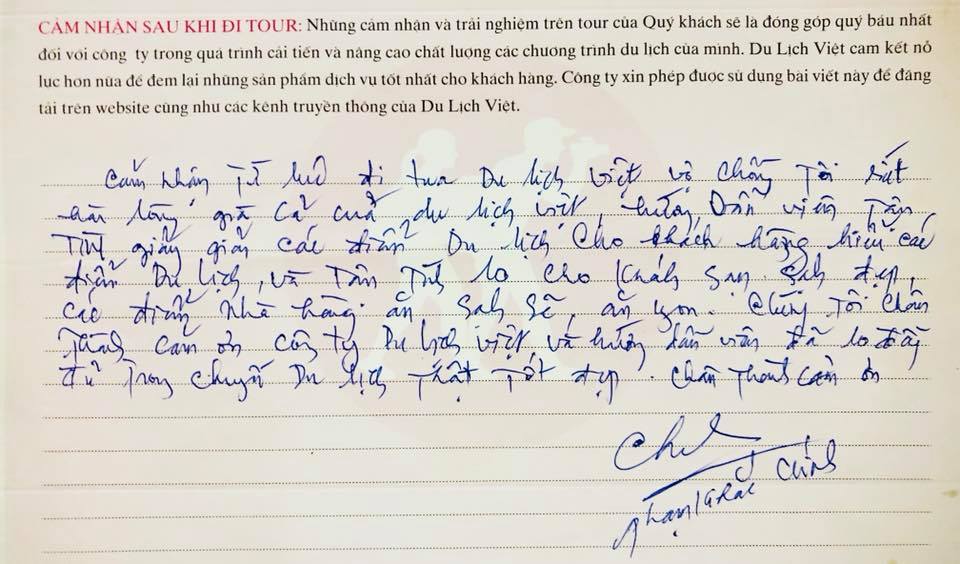 CẢM NHẬN SAU KHI ĐI TOUR: Những cảm nhận và trải nghiệm trên tour của Quý khách sẽ là đóng góp quý báu nhất
đối với công ty trong quá trình cải tiến và nâng cao chất lượng các chương trình du lịch của mình. Du Lịch Việt cam kết nỗ
lực hơn nữa để đem lại những sản phẩm dịch vụ tốt nhất cho khách hàng. Công ty xin phép được sử dụng bài viết này để đăng
tải trên website cũng như các kênh truyền thông của Du Lịch Việt.
Cảm nhận đi tua Du lịch Việt vợ chồng Tôi rất
hài lòng giá cả của du lịch việt, hướng Dẫn viên Tận
Tình giảng giải các điểm Du lịch cho khách hàng hiểu các
điểm Du lịch, và Tận Tình lo cho khách sạn sạch đẹp,
các điểm Nhà hàng ăn sạch sẽ, ăn ngon. Chúng Tôi chân
Thành cảm ơn công ty Du lịch việt và hướng dẫn viên đã lo đầy
đủ Trong chuyến Du lịch Thật Tốt đẹp. chân Thành cảm ơn
Phạm Khắc